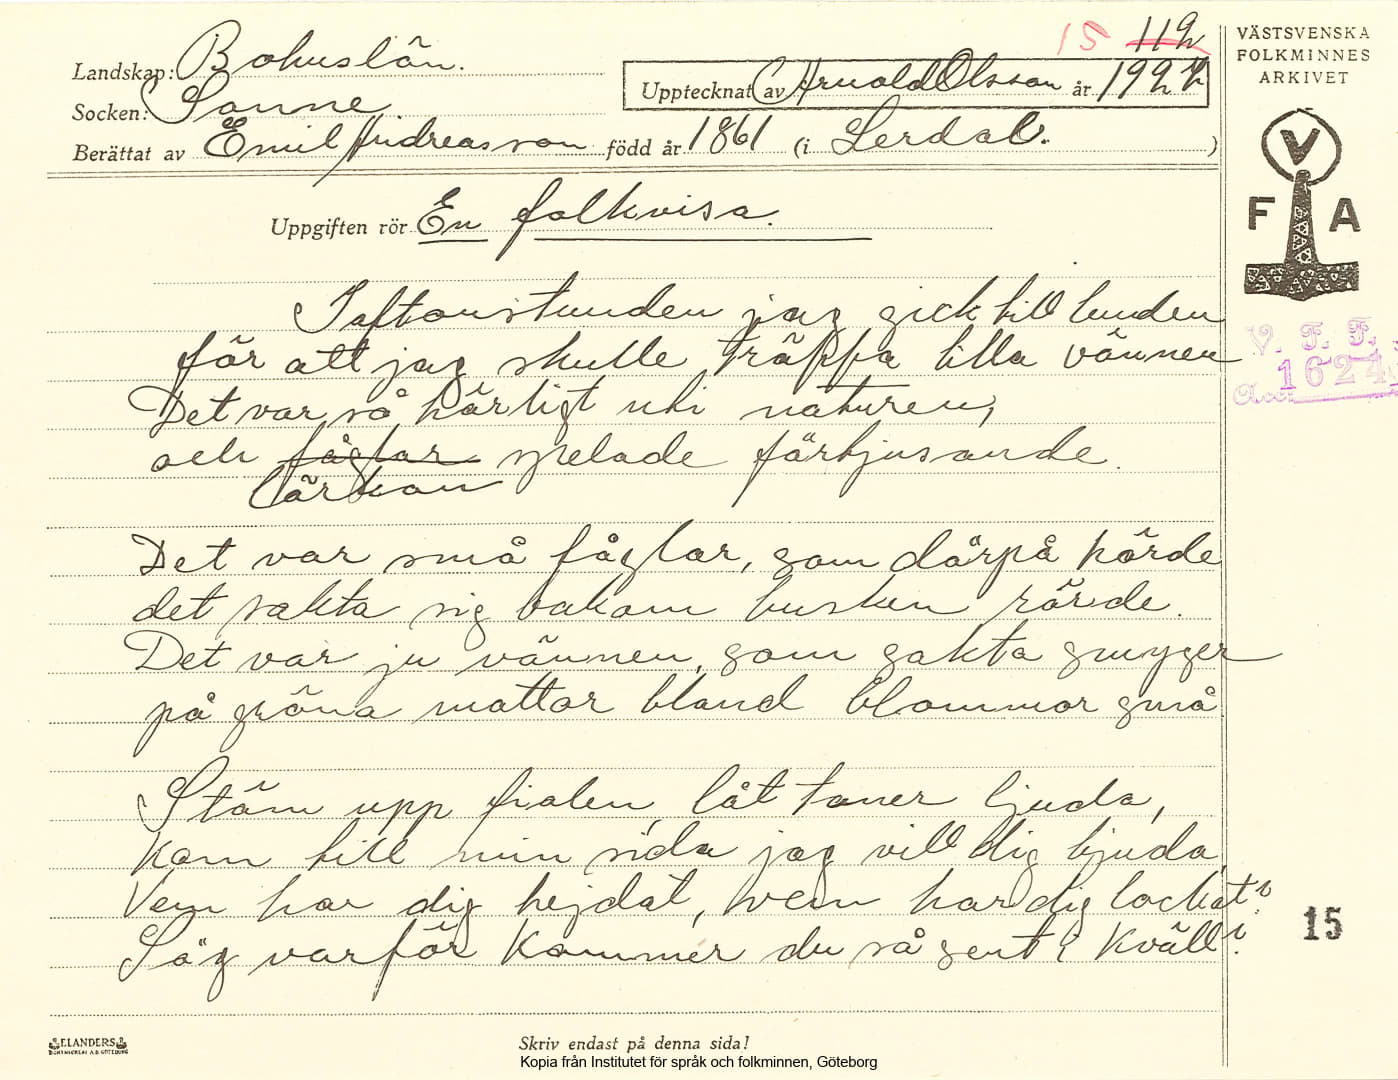 15 112
VÄSTSVENSKA
FOLKMINNES
ARKIVET
Landskap: Bohuslän.
Upptecknat av Arnold Olsson år 1927
Socken: Sanne
Berättat av Emil Andreasson född år 1861 (i Lerdal. )
V
F A
Uppgiften rör En folkvisa.
I aftonstunden jag gick till lunden
för att jag skulle träffa lilla vännen
Det var så härligt uti naturen,
och fåglar spelade förtjusande.
lärkan
V. F. F.
Acc. 1624
Det var små fåglar, som därpå hörde
det sakta sig bakom busken rörde.
Det var ju vännen, som sakta smyger
på gröna mattor bland blommor små
Stäm upp fiolen, låt toner ljuda,
Kom till min sida jag vill dig bjuda,
Vem har dig hejdat, vem har dig lockat?
Säg varför kommer du så sent i kväll?
15
ELANDERS
BOKTRYCKERI A.B. GÖTEBORG
Skriv endast på denna sida!
Kopia från Institutet för språk och folkminnen, Göteborg